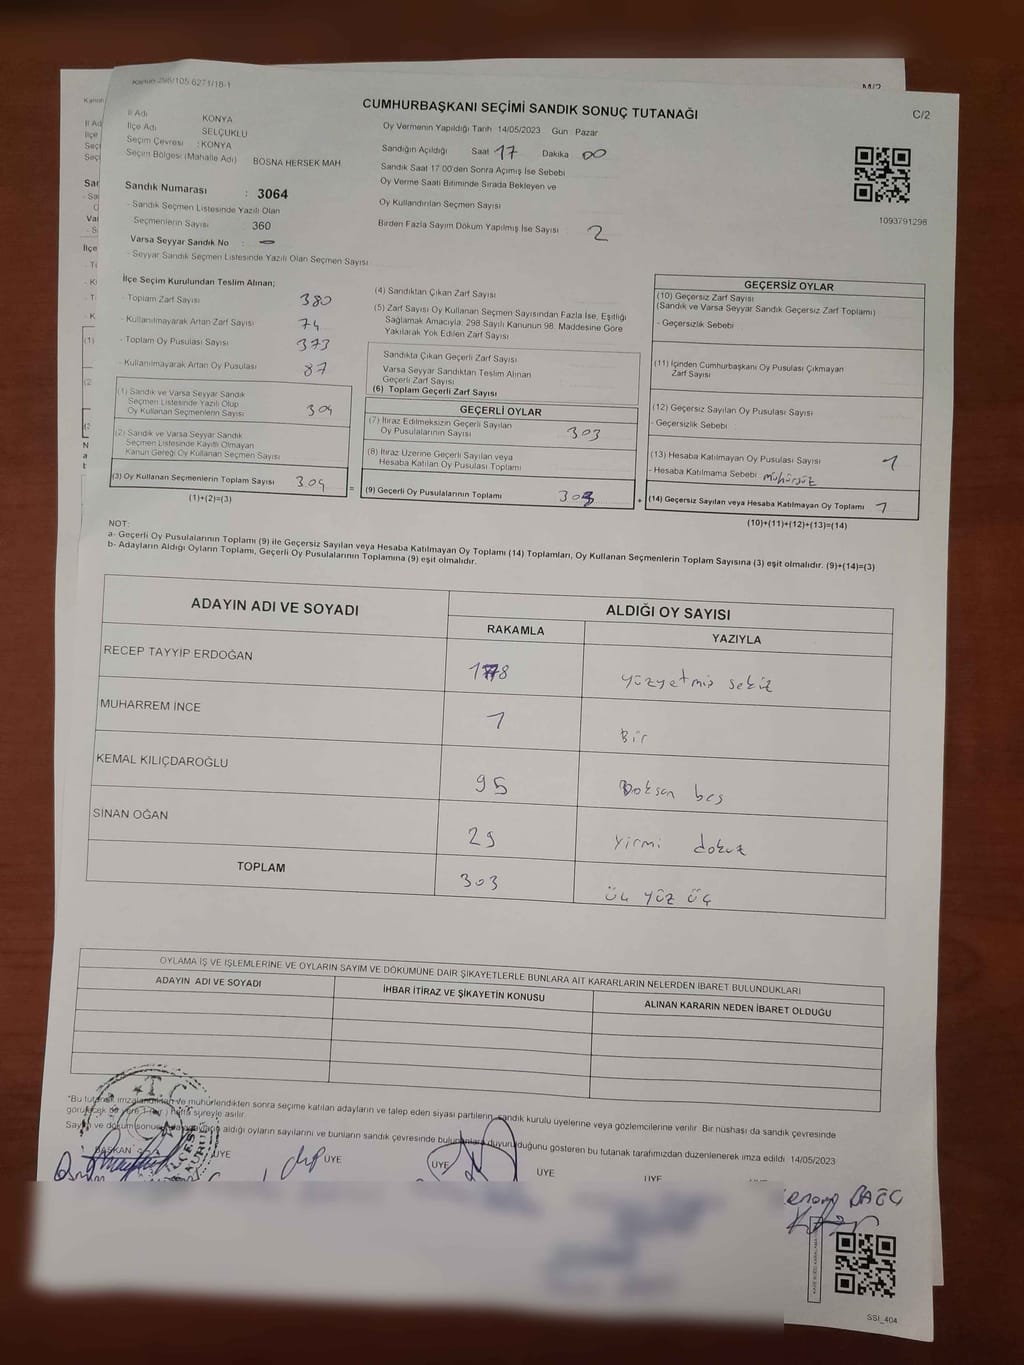 Kanun 298/105 6271/18-1
CUMHURBAŞKANI SEÇİMİ SANDIK SONUÇ TUTANAĞI
C/2
İl Adı KONYA
İlçe Adı SELÇUKLU
Seçim Çevresi : KONYA
Seçim Bölgesi (Mahalle Adı) BOSNA HERSEK MAH.
Sandık Numarası : 3064
- Sandık Seçmen Listesinde Yazılı Olan
Seçmenlerin Sayısı 360
Varsa Seyyar Sandık No : —
- Seyyar Sandık Seçmen Listesinde Yazılı Olan Seçmen Sayısı
Oy Vermenin Yapıldığı Tarih 14/05/2023 Gün Pazar
Sandığın Açıldığı Saat 17 Dakika 00
Sandık Saat 17:00'den Sonra Açımış İse Sebebi
Oy Verme Saati Bitiminde Sırada Bekleyen ve
Oy Kullandırılan Seçmen Sayısı
Birden Fazla Sayım Döküm Yapılmış İse Sayısı 2
1093791298
İlçe Seçim Kurulundan Teslim Alınan;
- Toplam Zarf Sayısı 380
- Kullanılmayarak Artan Zarf Sayısı 74
- Toplam Oy Pusulası Sayısı 373
- Kullanılmayarak Artan Oy Pusulası 87
(1) Sandık ve Varsa Seyyar Sandık
Seçmen Listesinde Yazılı Olup
Oy Kullanan Seçmenlerin Sayısı 304
(2) Sandık ve Varsa Seyyar Sandık
Seçmen Listesinde Kayıtlı Olmayan
Kanun Gereği Oy Kullanan Seçmen Sayısı
(3) Oy Kullanan Seçmenlerin Toplam Sayısı 304
(1)+(2)=(3)
=
(4) Sandıktan Çıkan Zarf Sayısı
(5) Zarf Sayısı Oy Kullanan Seçmen Sayısından Fazla İse, Eşitliği
Sağlamak Amacıyla, 298 Sayılı Kanunun 98. Maddesine Göre
Yakılarak Yok Edilen Zarf Sayısı
Sandıkta Çıkan Geçerli Zarf Sayısı
Varsa Seyyar Sandıktan Teslim Alınan
Geçerli Zarf Sayısı
(6) Toplam Geçerli Zarf Sayısı
GEÇERLİ OYLAR
(7) İtiraz Edilmeksizin Geçerli Sayılan
Oy Pusulalarının Sayısı 303
(8) İtiraz Üzerine Geçerli Sayılan veya
Hesaba Katılan Oy Pusulası Toplamı
(9) Geçerli Oy Pusulalarının Toplamı 303
+
GEÇERSİZ OYLAR
(10) Geçersiz Zarf Sayısı
(Sandık ve Varsa Seyyar Sandık Geçersiz Zarf Toplamı)
- Geçersizlik Sebebi
(11) İçinden Cumhurbaşkanı Oy Pusulası Çıkmayan
Zarf Sayısı
(12) Geçersiz Sayılan Oy Pusulası Sayısı
- Geçersizlik Sebebi
(13) Hesaba Katılmayan Oy Pusulası Sayısı 1
- Hesaba Katılmama Sebebi mühürsüz
(14) Geçersiz Sayılan veya Hesaba Katılmayan Oy Toplamı 1
(10)+(11)+(12)+(13)=(14)
NOT:
a- Geçerli Oy Pusulalarının Toplamı (9) ile Geçersiz Sayılan veya Hesaba Katılmayan Oy Toplamı (14) Toplamları, Oy Kullanan Seçmenlerin Toplam Sayısına (3) eşit olmalıdır. (9)+(14)=(3)
b- Adayların Aldığı Oyların Toplamı, Geçerli Oy Pusulalarının Toplamına (9) eşit olmalıdır.
ADAYIN ADI VE SOYADI ALDIĞI OY SAYISI
RAKAMLA YAZIYLA
RECEP TAYYİP ERDOĞAN 178 yüzyetmiş sekiz
MUHARREM İNCE 1 Bir
KEMAL KILIÇDAROĞLU 95 Doksan beş
SİNAN OĞAN 29 Yirmi dokuz
TOPLAM 303 üç yüz üç
OYLAMA İŞ VE İŞLEMLERİNE VE OYLARIN SAYIM VE DÖKÜMÜNE DAİR ŞİKAYETLERLE BUNLARA AİT KARARLARIN NELERDEN İBARET BULUNDUKLARI
ADAYIN ADI VE SOYADI İHBAR İTİRAZ VE ŞİKAYETİN KONUSU ALINAN KARARIN NEDEN İBARET OLDUĞU
"Bu tutanak imzalandıktan ve mühürlendikten sonra seçime katılan adayların ve talep eden siyasi partilerin, sandık kurulu üyelerine veya gözlemcilerine verilir. Bir nüshası da sandık çevresinde
görülecek bir yere 1 (bir) hafta süreyle asılır.
Sayım ve döküm sonucunda adayların aldığı oyların sayılarını ve bunların sandık çevresinde bulunanlara duyurulduğunu gösteren bu tutanak tarafımızdan düzenlenerek imza edildi. 14/05/2023
BAŞKAN ÜYE ÜYE ÜYE ÜYE ÜYE
T.C.
SSI_404